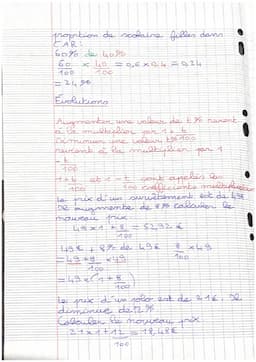 proportion de scolaire filles dans
CAR :
60% de 40%
60/100 × 40/100 = 0,6 × 0,4 = 0,24
= 24%
Évolutions
Augmenter une valeur de t% revient
à la multiplier par 1 + t/100
Diminuer une valeur t%
revient à la multiplier par 1
- t/100
1 + t/100 et 1 - t/100 sont appelés les
coefficients multiplicateurs
Le prix d'un survêtement est de 49€
Il augmente de 8% calculer le
nouveau prix
49 × 1 + 8/100 = 52,92 €
49€ + 8% de 49€ 8/100 × 49
= 49 + 8/100 × 49
= 49 × (1 + 8/100)
Le prix d'un est de 21€, Il
diminue de 12%
Calculer le nouveau prix
21 × 1 + 12/100 = 18,48€